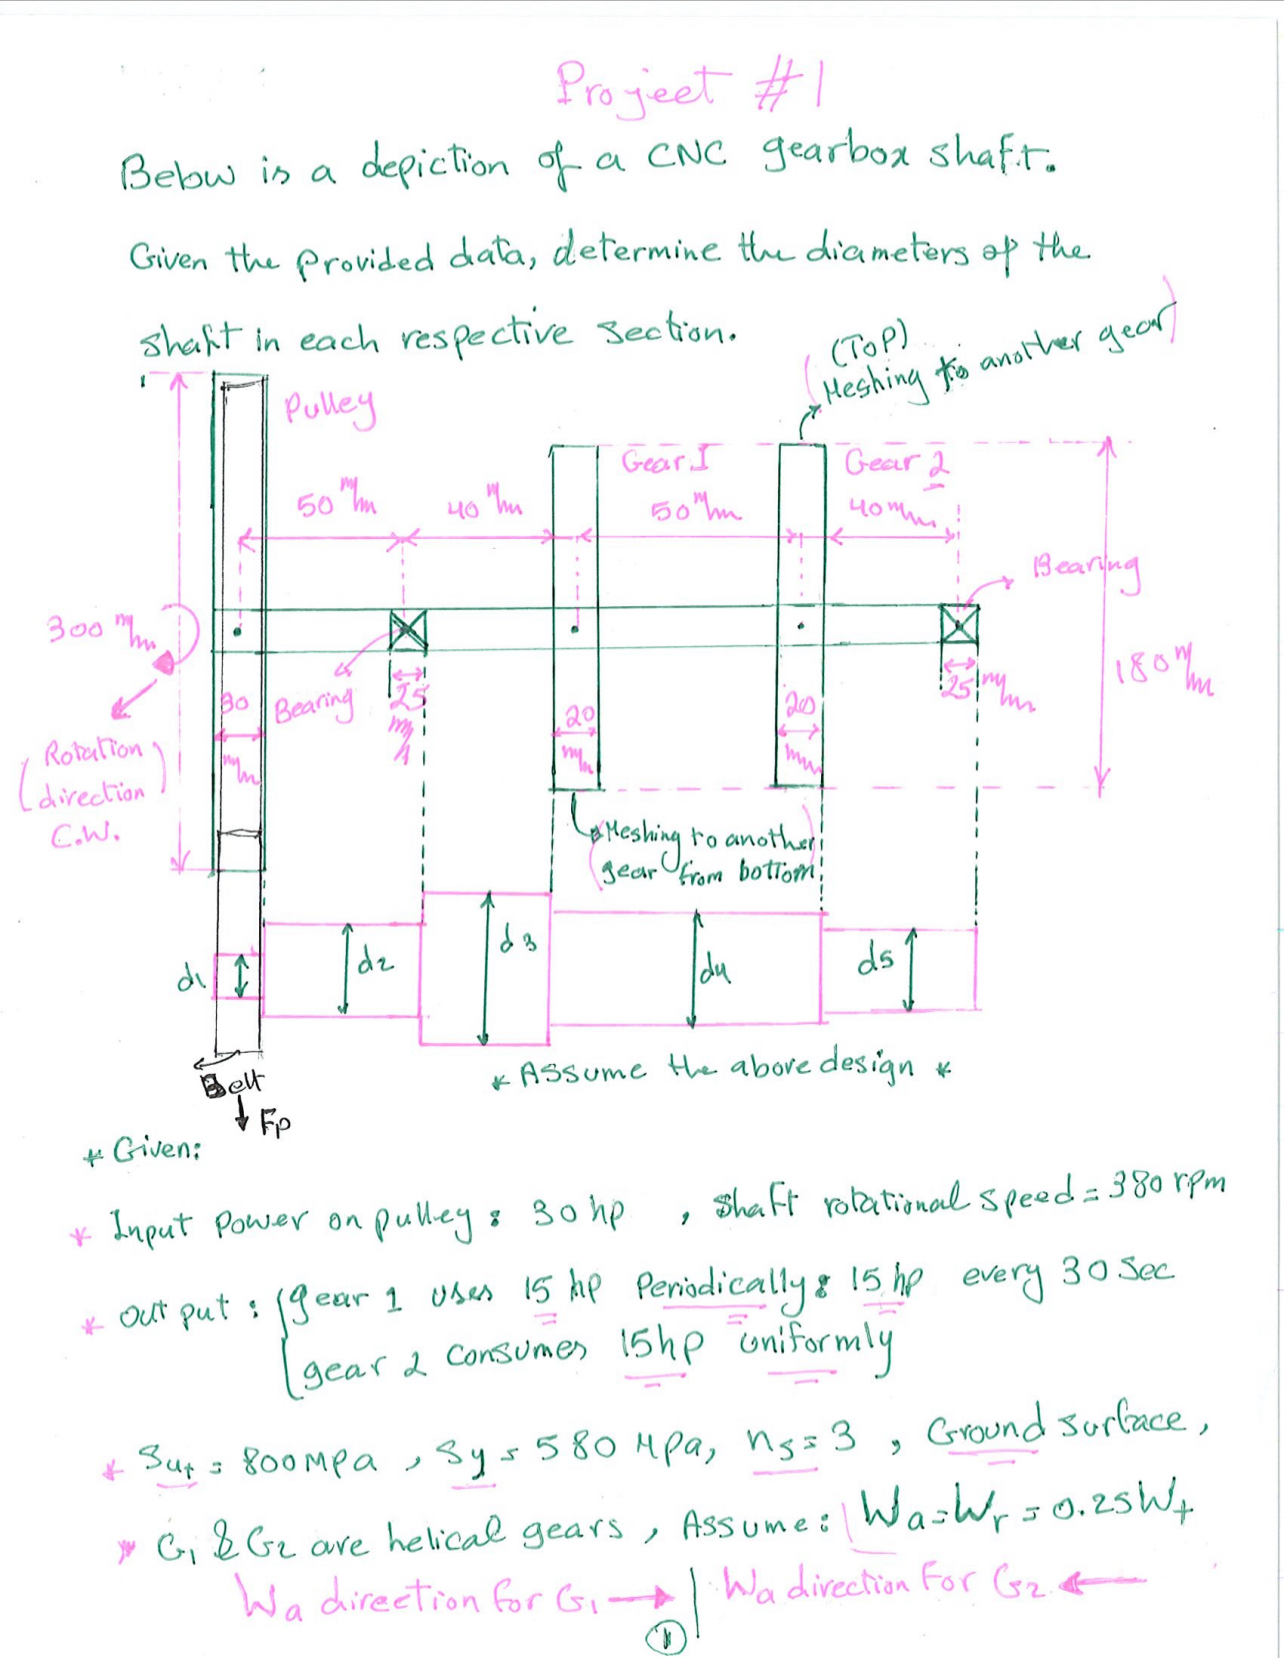 Project #1
Below is a depiction of a CNC gearbox shaft.
Given the provided data, determine the diameters of the
shaft in each respective section.
(Top)
Meshing to another gear
Pulley
Gear 1
Gear 2
50 mm
40 mm
50 mm
40 mm
Bearing
300 mm
180 mm
30
mm
Bearing
25
mm
20
mm
20
mm
25 mm
(Rotation
direction
C.W.)
Meshing to another
gear from bottom
d1
d2
d3
d4
d5
* Assume the above design *
Belt
Fp
* Given:
* Input Power on pulley: 30 hp, shaft rotational speed = 380 rpm
* Output: {gear 1 uses 15 hp Periodically: 15 hp every 30 Sec
gear 2 consumes 15hp uniformly
* Sut = 800 MPa, Sy = 580 MPa, ns = 3, Ground surface,
* G1 & G2 are helical gears, Assume: Wa = Wr = 0.25Wt
Wa direction for G1 → | Wa direction For G2 ←
1